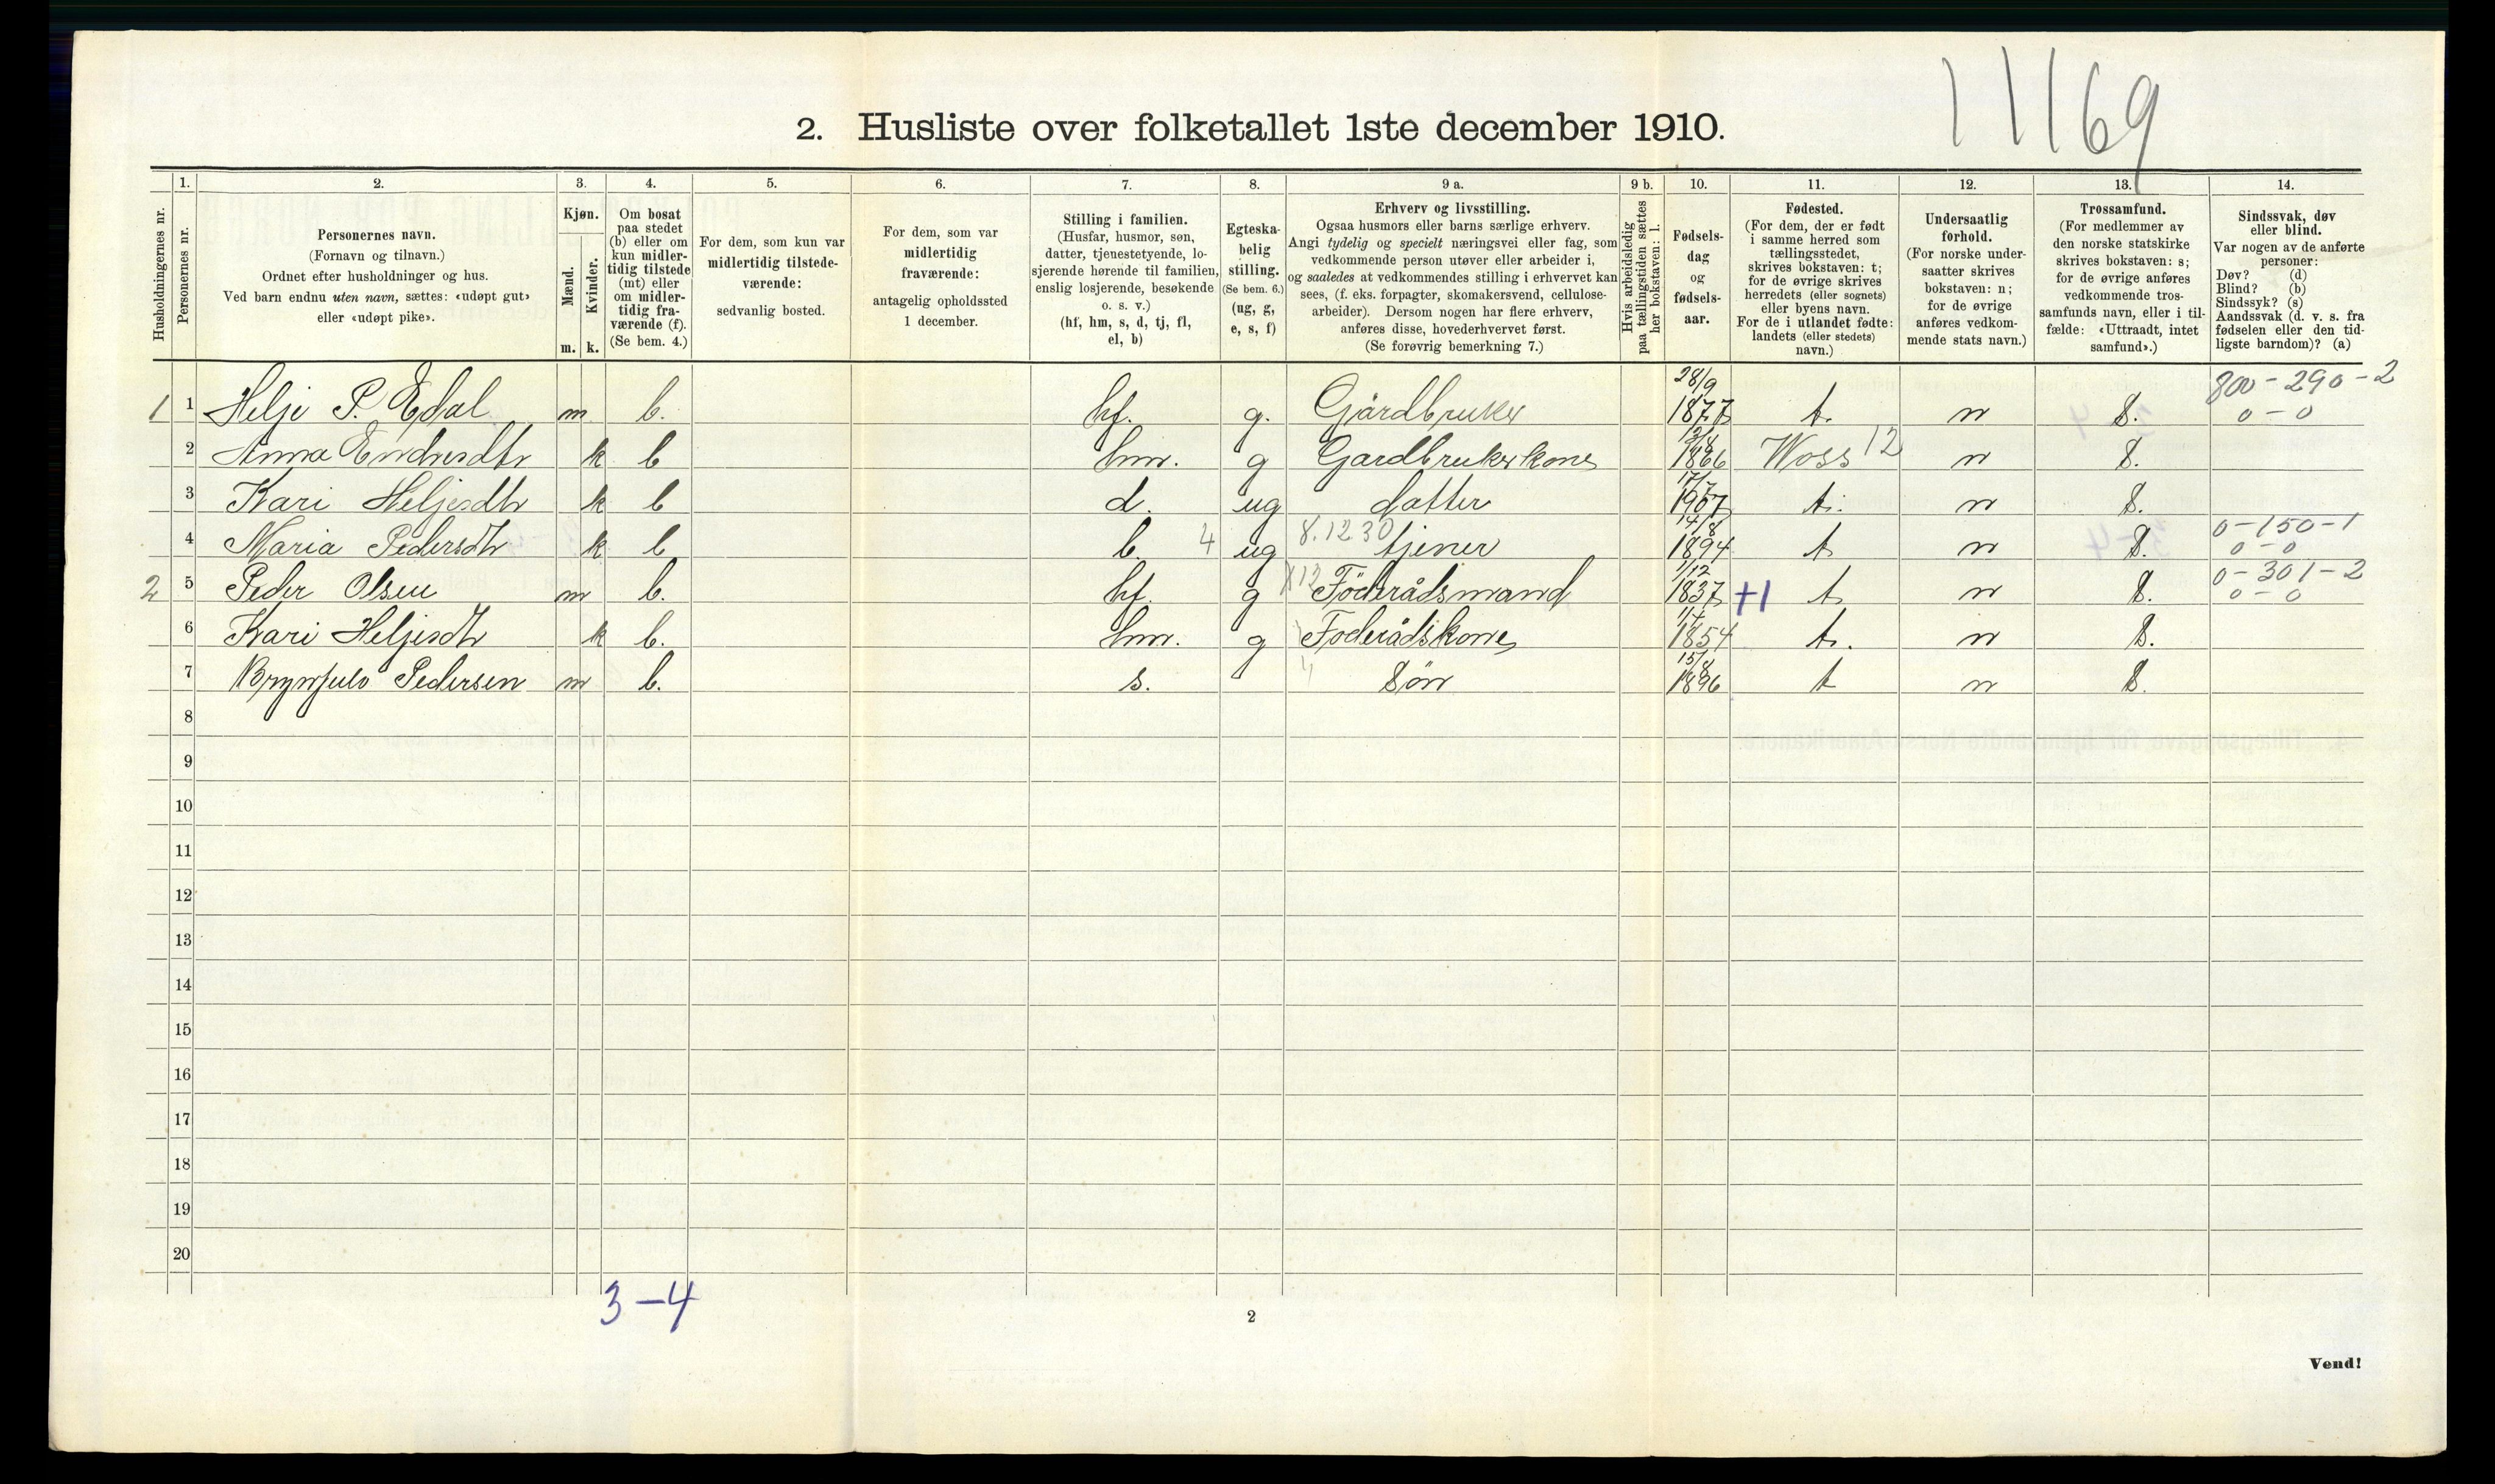 11169
2. Husliste over folketallet 1ste december 1910.
1. 2. 3. 4. 5. 6. 7. 8. 9 a. 9 b. 10. 11. 12. 13. 14.
Husholdningernes nr.
Personernes nr.
Personernes navn.
(Fornavn og tilnavn.)
Ordnet efter husholdninger og hus.
Ved barn endnu uten navn, sættes: «udøpt gut»
eller «udøpt pike».
Kjøn.
Mænd.
Kvinder.
m. k.
Om bosat
paa stedet
(b) eller om
kun midler-
tidig tilstede
(mt) eller
om midler-
tidig fra-
værende (f).
(Se bem. 4.)
For dem, som kun var
midlertidig tilstede-
værende:
sedvanlig bosted.
For dem, som var
midlertidig
fraværende:
antagelig opholdssted
1 december.
Stilling i familien.
(Husfar, husmor, søn,
datter, tjenestetyende, lo-
sjerende hørende til familien,
enslig losjerende, besøkende
o. s. v.)
(hf, hm, s, d, tj, fl,
el, b)
Egteska-
belig
stilling.
(Se bem. 6.)
(ug, g,
e, s, f)
Erhverv og livsstilling.
Ogsaa husmors eller barns særlige erhverv.
Angi tydelig og specielt næringsvei eller fag, som
vedkommende person utøver eller arbeider i,
og saaledes at vedkommendes stilling i erhvervet kan
sees, (f. eks. forpagter, skomakersvend, cellulose-
arbeider). Dersom nogen har flere erhverv,
anføres disse, hovederhvervet først.
(Se forøvrig bemerkning 7.)
Hvis arbeidsledig
paa tællingstiden sættes
her bokstaven: l.
Fødsels-
dag
og
fødsels-
aar.
Fødested.
(For dem, der er født
i samme herred som
tællingsstedet,
skrives bokstaven: t;
for de øvrige skrives
herredets (eller sognets)
eller byens navn.
For de i utlandet fødte:
landets (eller stedets)
navn.)
Undersaatlig
forhold.
(For norske under-
saatter skrives
bokstaven: n;
for de øvrige
anføres vedkom-
mende stats navn.)
Trossamfund.
(For medlemmer av
den norske statskirke
skrives bokstaven: s;
for de øvrige anføres
vedkommende tros-
samfunds navn, eller i til-
fælde: «Uttraadt, intet
samfund».)
Sindssvak, døv
eller blind.
Var nogen av de anførte
personer:
Døv? (d)
Blind? (b)
Sindssyk? (s)
Aandssvak (d. v. s. fra
fødselen eller den tid-
ligste barndom)? (a)
1 1 Helje P. Edal m b. hf. g. Gårdbruker 28/9 1877 t. n S. 800-290-2 0-0
2 Anna Endresdtr k b hm. g Gardbrukerkone 1866 Woss 12 n S.
3 Kari Heljesdtr k b d. ug datter 17/7 1907 t. n S.
4 Maria Pedersdtr k b b. 4 ug 8.12 30 tjener 14/8 1894 t n S. 0-150-1 0-0
2 5 Peder Olsen m b. hf. g X12 Föderådsmand 1/12 1837 +1 t n S. 0-301-2 0-0
6 Kari Heljesdtr k b. hm. g Foderådskone 1854 t. n S.
7 Brynjulv Pedersen m b. s. Sön 15/8 1896 t n S.
8
9
10
11
12
13
14
15
16
17
18
19
20
3-4
2
Vend!